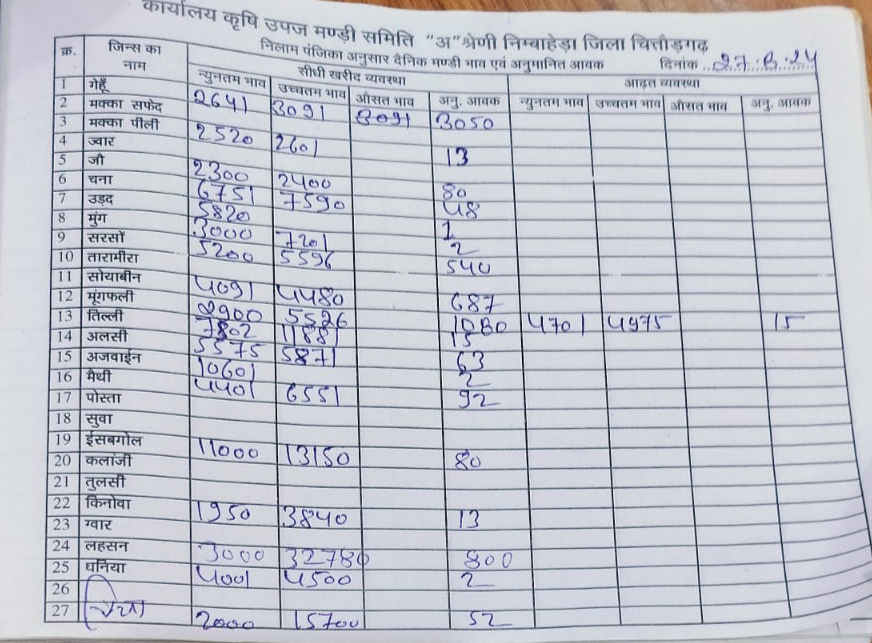 कार्यालय कृषि उपज मण्डी समिति "अ" श्रेणी निम्बाहेड़ा जिला चित्तौड़गढ़
निलाम पंजिका अनुसार दैनिक मण्डी भाव एवं अनुमानित आवक दिनांक 27.8.24
क्र. जिन्स का नाम सीधी खरीद व्यवस्था आढ़त व्यवस्था
न्युनतम भाव उच्चतम भाव औसत भाव अनु. आवक न्युनतम भाव उच्चतम भाव औसत भाव अनु. आवक
1 गेहूँ 2641 3091 3091 3050
2 मक्का सफेद
3 मक्का पीली 2520 2601 13
4 ज्वार
5 जौ 2300 2400 80
6 चना 6751 7590 48
7 उड़द 5820 1
8 मुंग 3000 7201 2
9 सरसों 5200 5596 540
10 तारामीरा
11 सोयाबीन 4091 4480 687
12 मूंगफली 2900 5526 1080 4701 4975 15
13 तिल्ली 7802 11881 15
14 अलसी 5575 5871 63
15 अजवाईन 10601 2
16 मैथी 4401 6551 92
17 पोस्ता
18 सुवा
19 ईसबगोल 11000 13150 80
20 कलांजी
21 तुलसी
22 किनोवा 1950 3840 13
23 ग्वार
24 लहसन 3000 32780 800
25 धनिया 4001 4500 2
26
27 2000 15700 52